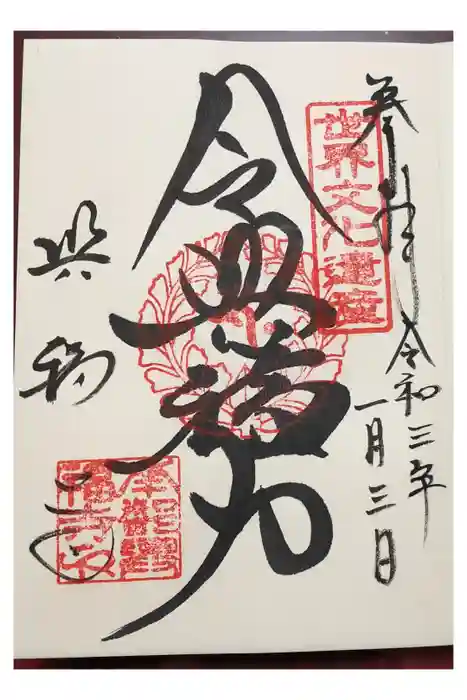 奉拝
令和三年
一月三日
世界文化遺産
令興福力
興福寺